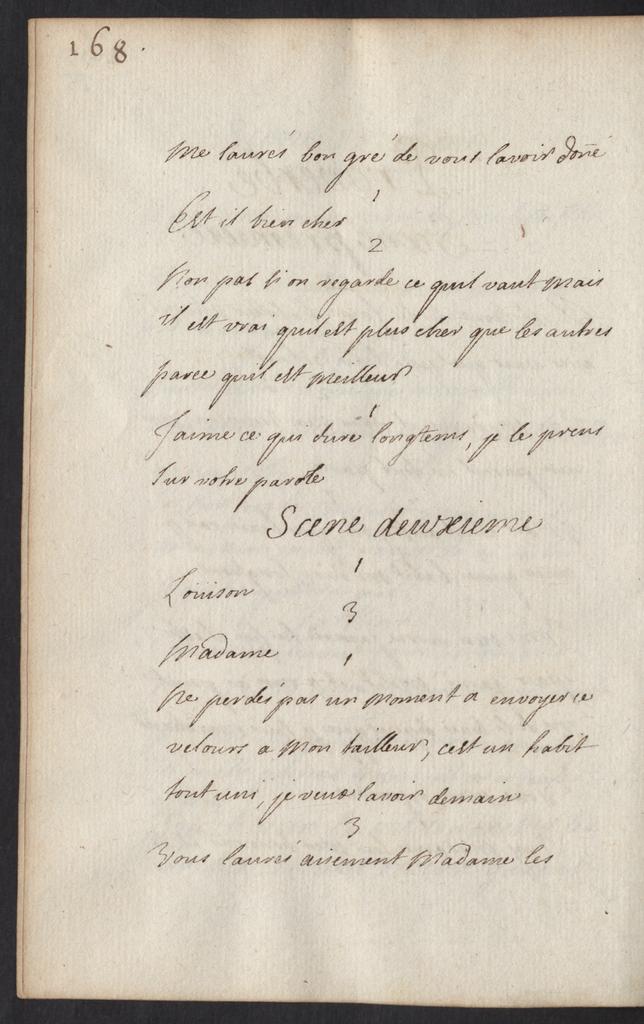 168.
me saurés bon gré de vous lavoir doñé
1
Est il bien cher
2
Non pas si on regarde ce quil vaut mais
il est vrai quil est plus cher que les autres
parce quil est meilleur
1
Jaime ce qui dure longtems, je le prens
sur votre parole
Scene deuxieme
1
Loüison
3
Madame
1
Ne perdés pas un moment a envoyer ce
velours a mon tailleur, cest un habit
tout uni, je veux lavoir demain
3
Vous laurés aisement Madame les